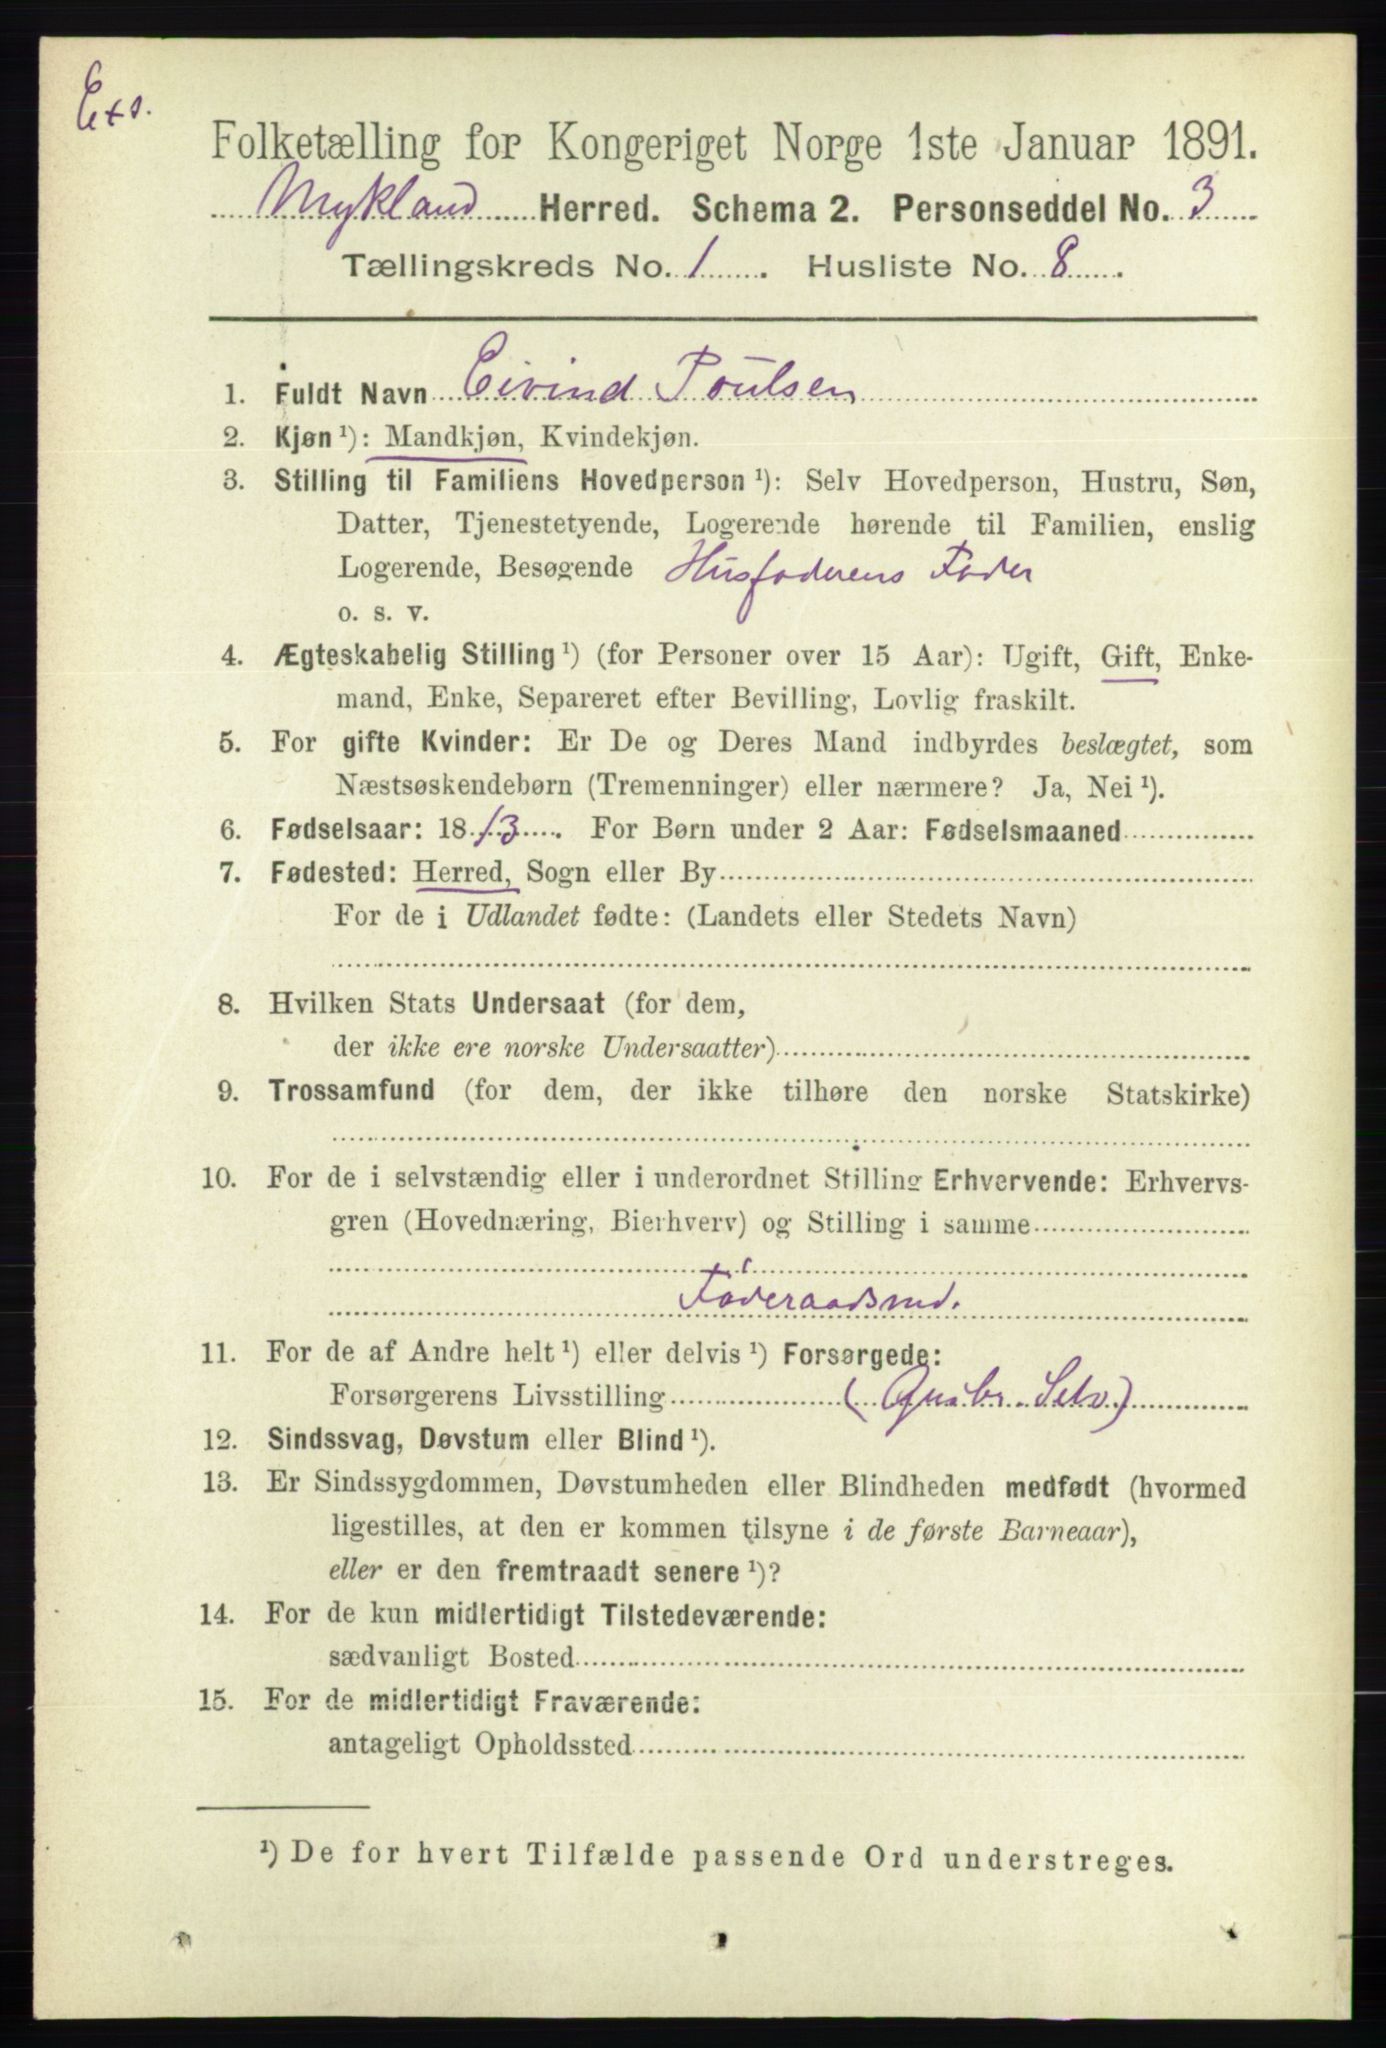 Ets.
Folketælling for Kongeriget Norge 1ste Januar 1891.
Mykland Herred. Schema 2. Personseddel No. 3
Tællingskreds No. 1. Husliste No. 8.
1. Fuldt Navn Eivind Poulsen
2. Kjøn ¹): Mandkjøn, Kvindekjøn.
3. Stilling til Familiens Hovedperson ¹): Selv Hovedperson, Hustru, Søn,
Datter, Tjenestetyende, Logerende hørende til Familien, enslig
Logerende, Besøgende Husfaderens Fader
o. s. v.
4. Ægteskabelig Stilling ¹) (for Personer over 15 Aar): Ugift, Gift, Enke-
mand, Enke, Separeret efter Bevilling, Lovlig fraskilt.
5. For gifte Kvinder: Er De og Deres Mand indbyrdes beslægtet, som
Næstsøskendebørn (Tremenninger) eller nærmere? Ja, Nei ¹).
6. Fødselsaar: 1813. For Børn under 2 Aar: Fødselsmaaned
7. Fødested: Herred, Sogn eller By
For de i Udlandet fødte: (Landets eller Stedets Navn)
8. Hvilken Stats Undersaat (for dem,
der ikke ere norske Undersaatter)
9. Trossamfund (for dem, der ikke tilhøre den norske Statskirke)
10. For de i selvstændig eller i underordnet Stilling Erhvervende: Erhvervs-
gren (Hovednæring, Bierhverv) og Stilling i samme
Føderaadsmd.
11. For de af Andre helt ¹) eller delvis ¹) Forsørgede:
Forsørgerens Livsstilling (Gusbr. Selv)
12. Sindssvag, Døvstum eller Blind ¹).
13. Er Sindssygdommen, Døvstumheden eller Blindheden medfødt (hvormed
ligestilles, at den er kommen tilsyne i de første Barneaar),
eller er den fremtraadt senere ¹)?
14. For de kun midlertidigt Tilstedeværende:
sædvanligt Bosted
15. For de midlertidigt Fraværende:
antageligt Opholdssted
¹) De for hvert Tilfælde passende Ord understreges.